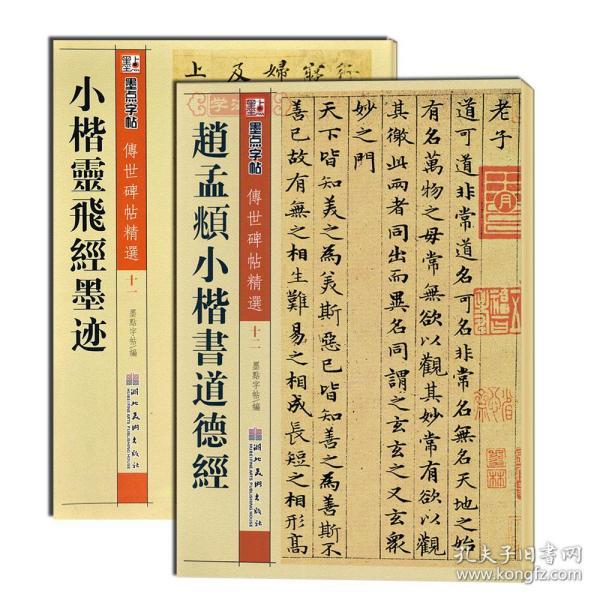 墨点字帖
傳世碑帖精選
十一
墨點字帖/編
小楷靈飛經墨迹
湖北美術出版社
HUBEI FINE ARTS PUBLISHING HOUSE
婦及上
墨点字帖
傳世碑帖精選
十二
墨點字帖/編
趙孟頫小楷書道德經
湖北美術出版社
HUBEI FINE ARTS PUBLISHING HOUSE
老子
道可道非常道名可名非常名無名天地之始
有名萬物之母常無欲以觀其妙常有欲以觀
其徼此兩者同出而異名同謂之玄玄之又玄衆
妙之門
天下皆知美之為美斯惡已皆知善之為善斯不
善已故有無之相生難易之相成長短之相形高
孔夫子旧书网
www.kongfz.com